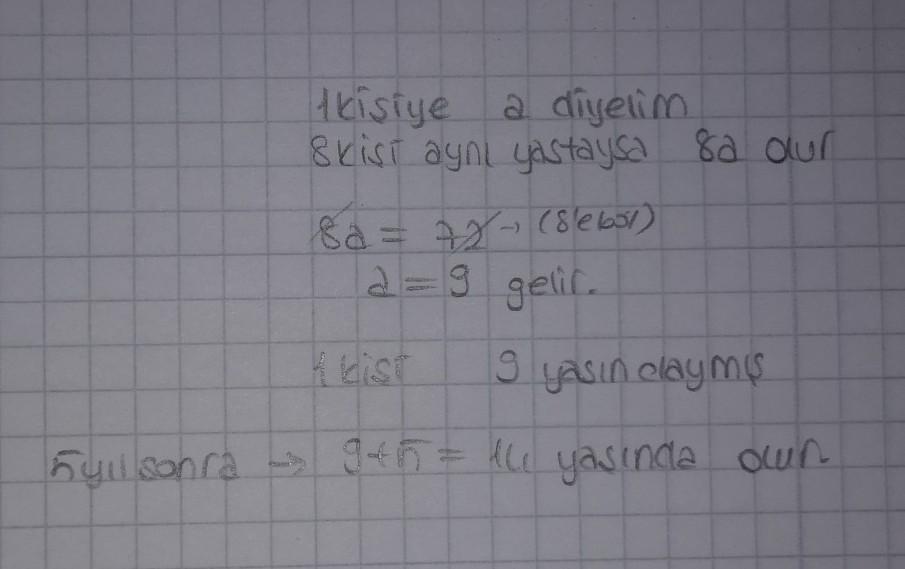 1kişiye a diyelim
8kişi aynı yaştaysa 8a olur
8a = 72 → (8'e böl)
a = 9 gelir.
1kişi 9 yaşındaymış
5yıl sonra → 9+5 = 14 yaşında olur